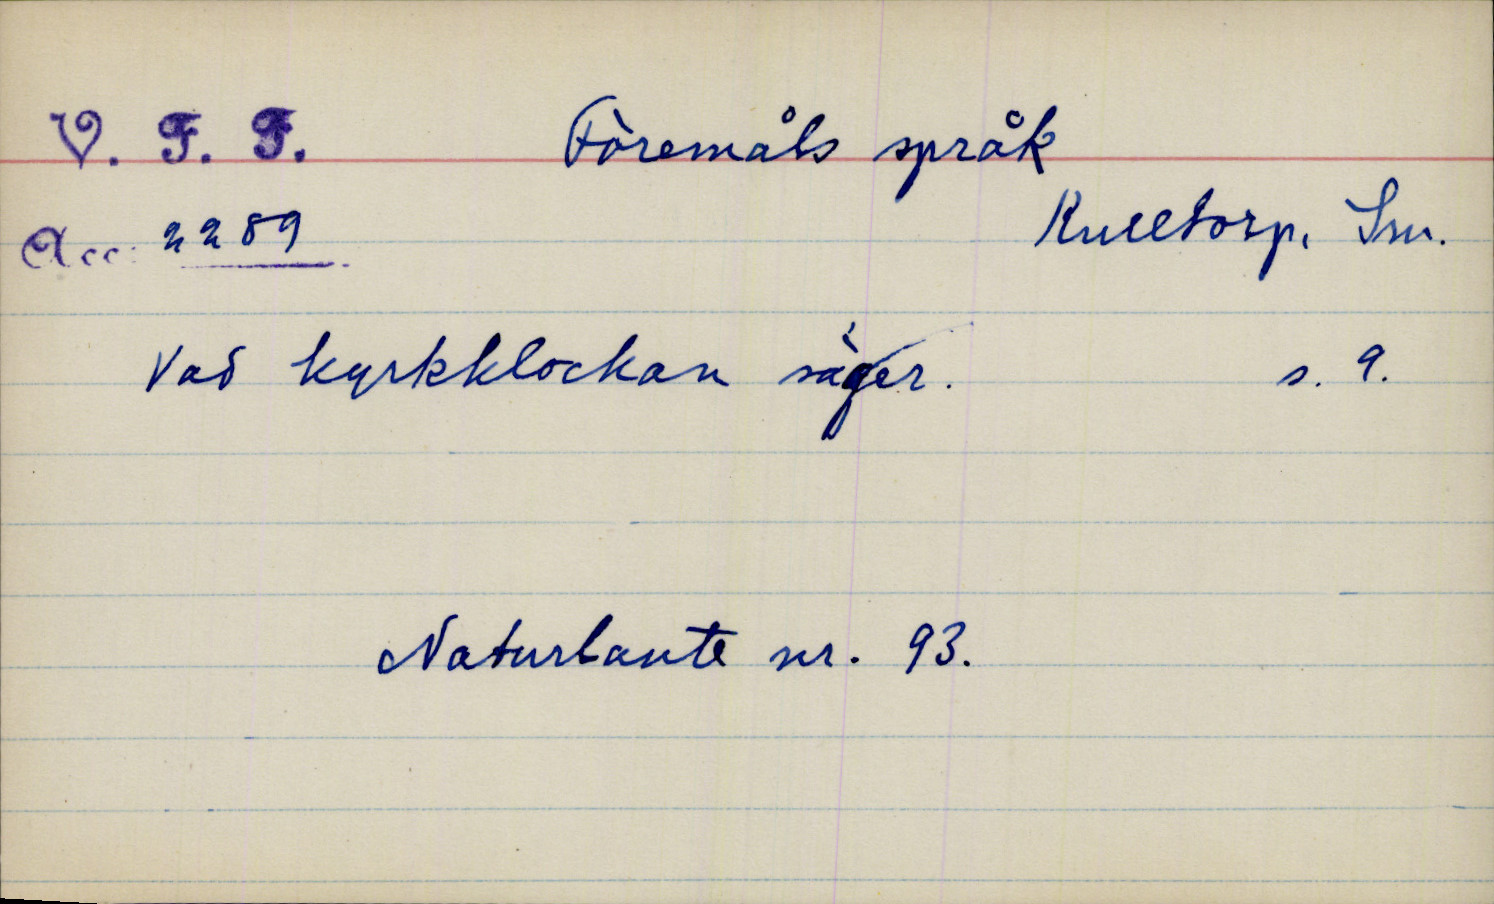 V. F. F. Föremåls språk
Acc: 2289 Kulltorp, Sm.
Vad kyrkklockan säger. s. 9.
Naturlaute nr. 93.